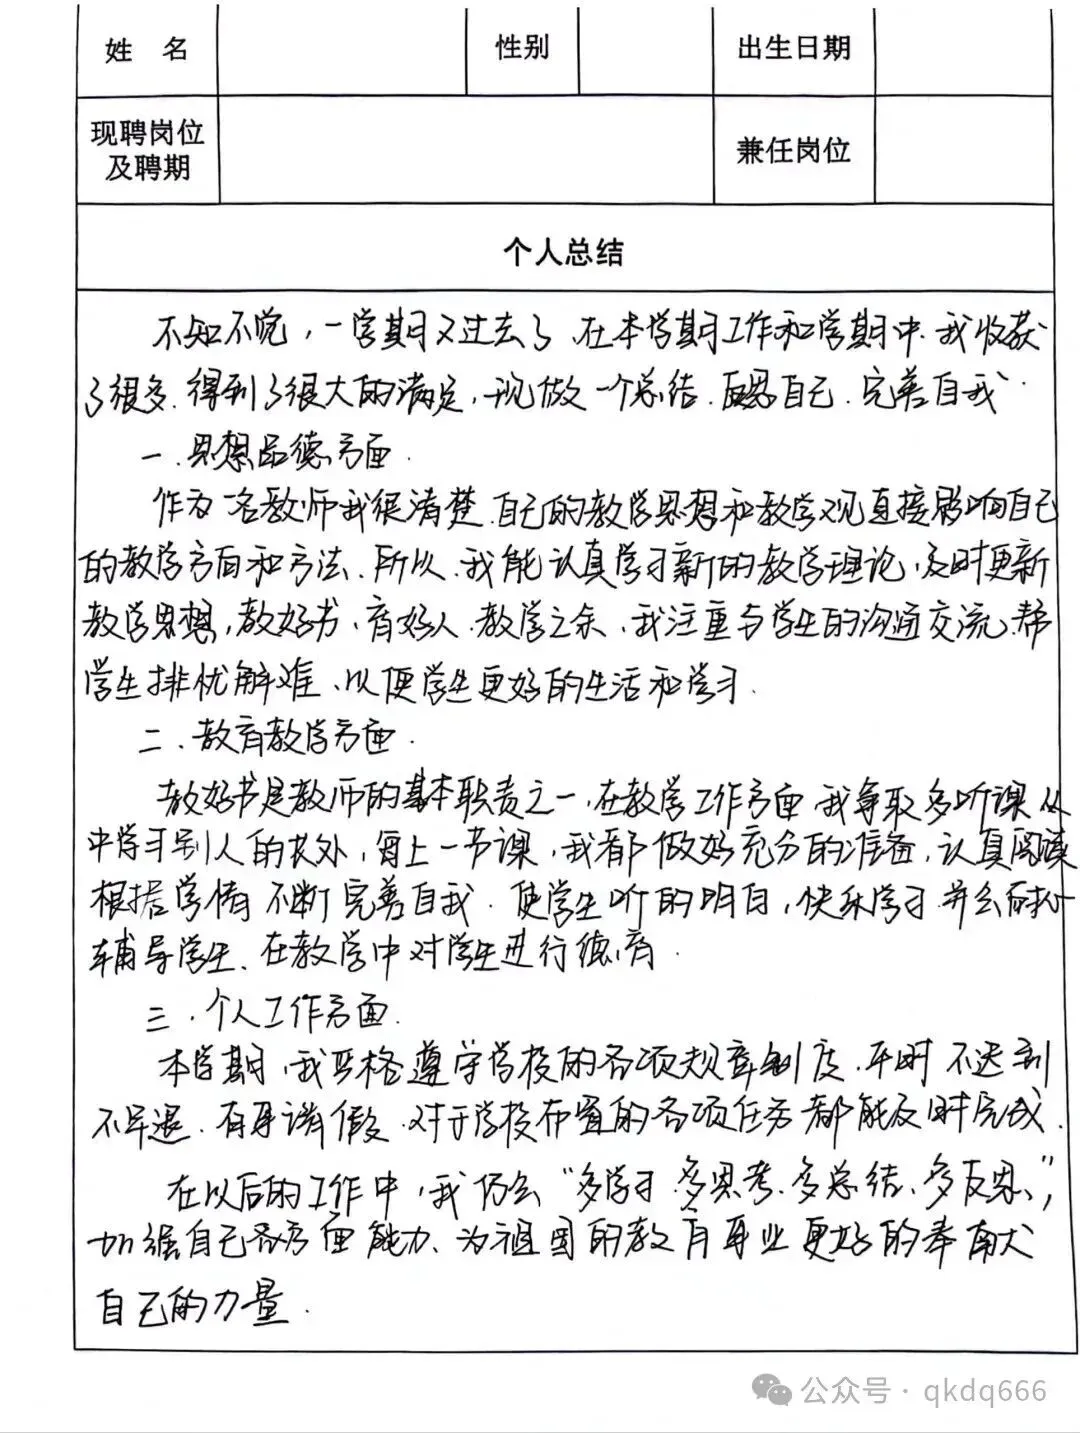 姓 名 性别 出生日期
现聘岗位及聘期 兼任岗位
个人总结
不知不觉，一学期又过去了.在本学期工作和学期中.我收获
了很多.得到了很大的满足，现做一个总结.反思自己.完善自我.
一.思想品德方面.
作为一名教师我很清楚.自己的教学思想和教学观直接影响自己
的教学方面和方法.所以.我能认真学习新的教学理论,及时更新
教学思想，教好书、育好人.教学之余、我注重与学生的沟通交流.帮
学生排忧解难、以便学生更好的生活和学习.
二.教育教学方面.
教好书是教师的基本职责之一.在教学工作方面.我争取多听课从
中学习别人的长处，每上一节课，我都做好充分的准备,认真阅读
根据学情不断完善自我.使学生听的明白,快乐学习.并会耐心
辅导学生、在教学中对学生进行德育.
三.个人工作方面.
本学期,我严格遵守学校的各项规章制度.平时不迟到
不早退.有事请假.对于学校布置的各项任务都能及时完成.
在以后的工作中，我仍会“多学习.多思考.多总结、多反思”,
加强自己各方面能力、为祖国的教育事业更好的奉献
自己的力量.
公众号·qkdq666